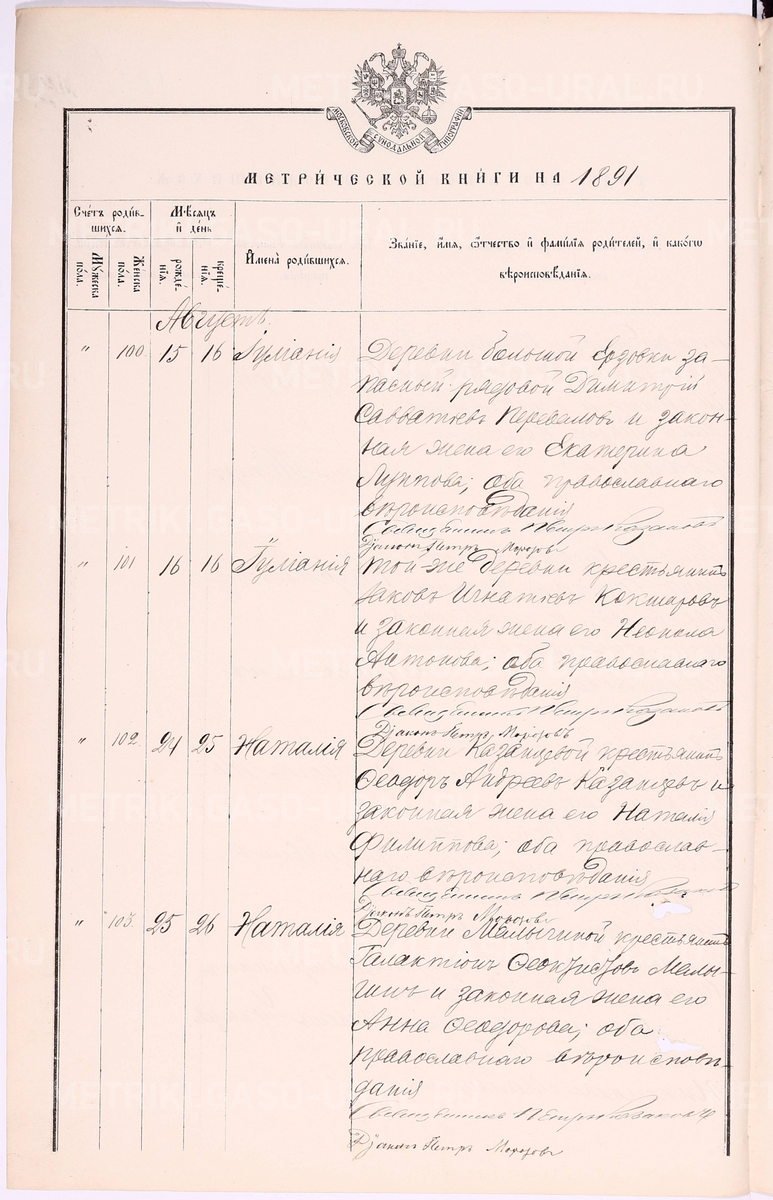 МОСКОВСКОЙ СѴНОДАЛЬНОЙ ТИПОГРАФІИ
МЕТРИ́ЧЕСКОЙ КНИ́ГИ НА 1891
Сче́тъ роди́в-
шихся.
Му́жеска
по́ла.
Же́нска
по́ла.
Мѣ́сяцъ
и҆ де́нь
рожде́-
нїѧ.
креще́-
нїѧ.
И҆мена̀ роди́вшихся.
Зва́нїе, и҆́мѧ, ѻ҆́тчество и҆ фами́лїѧ роди́телей, и҆ како́гѡ
вѣроисповѣ́данїѧ.
Августъ
" 100 15 16 Іуліанія
Деревни большой Ердвски за-
пасный рядовой Димитрій
Савватіевъ Перевалов и закон-
ная жена его Екатерина
Луппова; оба православнаго
вѣроисповѣданія
Священникъ Петръ Казаковъ
Діаконъ Петръ Морозовъ
" 101 16 16 Іуліанія
той-же деревни крестьянинъ
Іаковъ Игнатіевъ Кокшаровъ
и законная жена его Неонила
Антонова; оба православнаго
вѣроисповѣданія
Священникъ Петръ Казаковъ
Діаконъ Петръ Морозовъ
" 102 24 25 Наталія
Деревни Казанцевой крестьянинъ
Ѳеодоръ Андреевъ Казанцевъ и
законная жена его Наталія
Филиппова; оба православ-
наго вѣроисповѣданія
Священникъ Петръ Казаковъ
Діаконъ Петръ Морозовъ
" 103 25 26 Наталія
Деревни Малыгиной крестьянинъ
Галактіонъ Ѳеоктистовъ Малы-
гинъ и законная жена его
Анна Ѳеодорова; оба
православнаго вѣроисповѣ-
данія
Священникъ Петръ Казаковъ
Діаконъ Петръ Морозовъ